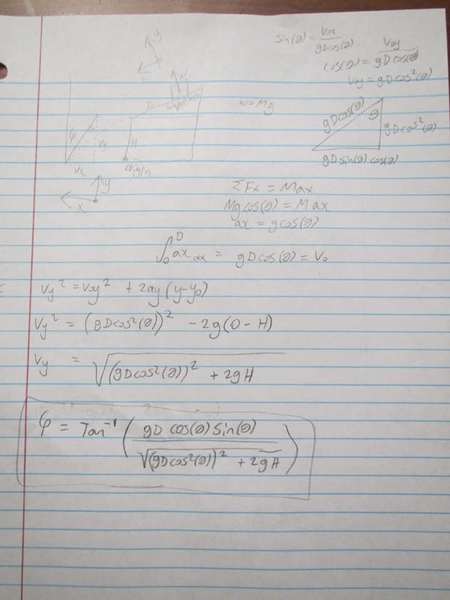 sin(θ) = Vox / gDcos(θ)
cos(θ) = Voy / gDcos(θ)
Voy = gDcos²(θ)
w = Mg
gDcos(θ)
θ
gDcos²(θ)
gDsin(θ)cos(θ)
y
x
H
ΣFx = Max
Mgcos(θ) = Max
ax = gcos(θ)
∫₀ᴰ ax dx = gDcos(θ) = V₀
Vy² = Voy² + 2ay(y-y₀)
Vy² = (gDcos²(θ))² - 2g(0-H)
Vy = √((gDcos²(θ))² + 2gH)
φ = Tan⁻¹ ( gD cos(θ) Sin(θ) / √((gDcos²(θ))² + 2gH) )